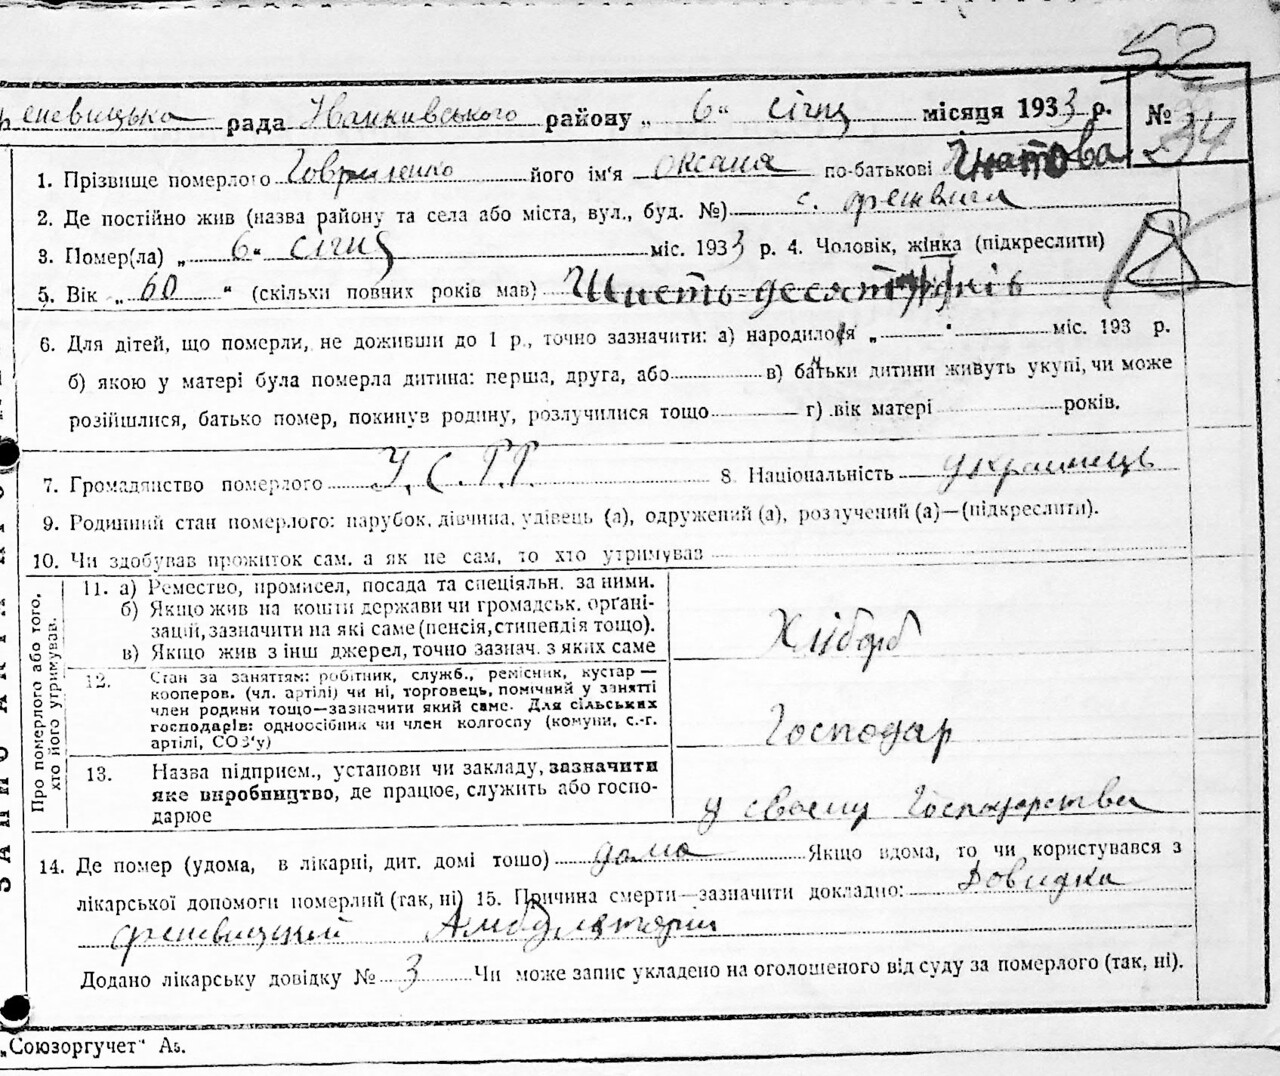 52
феневицька рада Іванківського району „ 6 " січня місяця 1933 р. № 34
1. Прізвище померлого Говриленко його ім'я Оксана по-батькові Ігнатова
2. Де постійно жив (назва району та села або міста, вул., буд. №) с. феневичі
3. Помер(ла) „ 6 " січня міс. 1933 р. 4. Чоловік, жінка (підкреслити)
5. Вік „ 60 " (скільки повних років мав)
6. Для дітей, що померли, не доживши до 1 р., точно зазначити: а) народилося „ міс. 193 р.
б) якою у матері була померла дитина: перша, друга, або в) батьки дитини живуть укупі, чи може
розійшлися, батько помер, покинув родину, розлучилися тощо г) вік матері років.
7. Громадянство померлого У.С.Р.Р. 8. Національність українець
9. Родинний стан померлого: парубок, дівчина, удівець (а), одружений (а), розлучений (а)—(підкреслити).
10. Чи здобував прожиток сам, а як не сам, то хто утримував
Про померлого або того, хто його утримував.
11. а) Ремество, промисел, посада та спеціяльн. за ними.
б) Якщо жив на кошти держави чи громадськ. органі-
зацій, зазначити на які саме (пенсія, стипендія тощо).
в) Якщо жив з інш джерел, точно зазнач. з яких саме
Хлібороб
12. Стан за заняттям: робітник, служб., ремісник, кустар—
кооперов. (чл. артілі) чи ні, торговець, помічний у занятті
член родини тощо—зазначити який саме. Для сільських
господарів: одноосібник чи член колгоспу (комуни, с.-г.
артілі, СОЗ'у)
Господар
13. Назва підприєм., установи чи закладу, зазначити
яке виробництво, де працює, служить або госпо-
дарює
у своему Господарстви
14. Де помер (удома, в лікарні, дит. домі тощо) дома Якщо вдома, то чи користувався з
лікарської допомоги померлий (так, ні) 15. Причина смерти—зазначити докладно: Довидка
феневицкий Амбулаторіи
Додано лікарську довідку № 3 Чи може запис укладено на оголошеного від суду за померлого (так, ні).
„Союзоргучет"